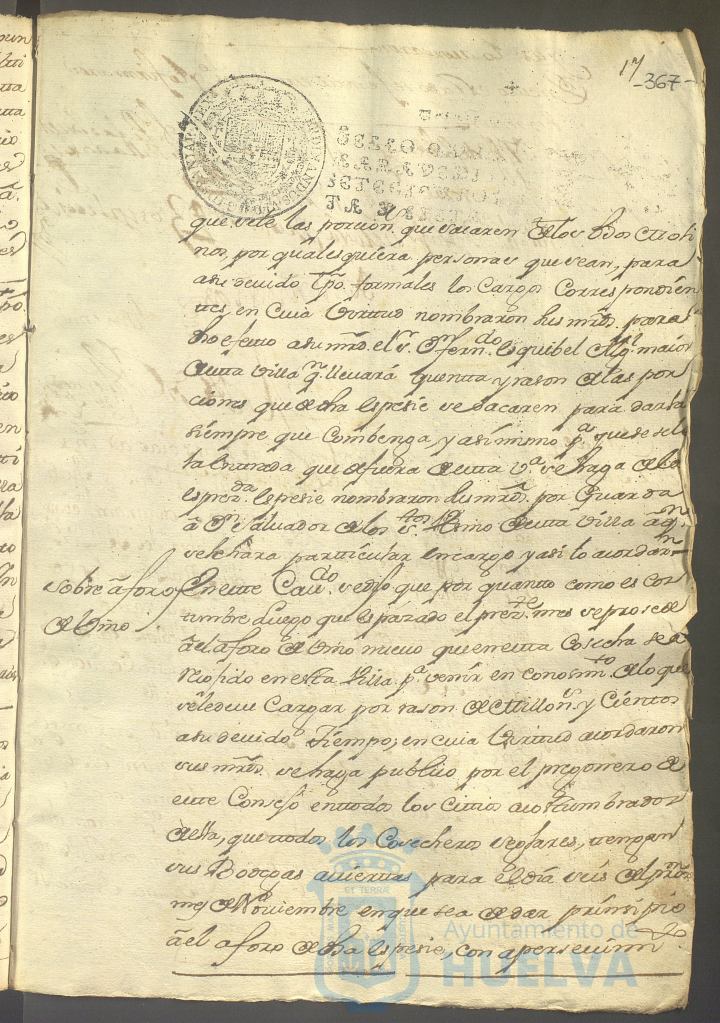 17
-367-
que, vele las porcion. que sacaren
nos, por quales quiera personas que sean, para
a su devido tpo. formales los Cargos Correspondien
tes, en Cuia Virttud nombraron sus mrds. para
dho efetto a su mrd. el sr. Dn. ferndo. Esquibel Alguasil maior
de esta villa qn. llevará quentta y rason de las por
ciones que de dha espesie se sacaren para darla
siempre que Combenga, y asi mismo pa. que se sele
la enttrada que de fuera de esta va. se haga de la
espresda. espesie nombraron sus mrds. por Guarda
á Dn. Salvador de los Stos. Vesino de esta Villa á qn.
se le hara particular encargo y asi lo acordaron
sobre áforo
de Vino
En este Cavdo. se dijo que por quanto como es Cos
tumbre, Luego que es pasado el preste. mes se prosede
á el aforo de Vino nuevo que en esta Cosecha se á
cojido en esta Villa pa. venir en conosimto. de lo que
se le deve Cargar por rason de Millons. y Cienttos
a su devido Tiempo; en cuia Virttud acordaron
sus mrds. se haga publico por el pregonero de
este Consejo en ttodos los Cittios acosttumbrados
de ella, que ttodos los Cosecheros seglares, ttengan
sus Bodegas aviertas para el día seis del proxmo.
mes de Noviembre en que se a de dar prinsipio
á el aforo de dha espesie, con apersevimto.
ET TERRÆ
Ayuntamiento de
HUELVA